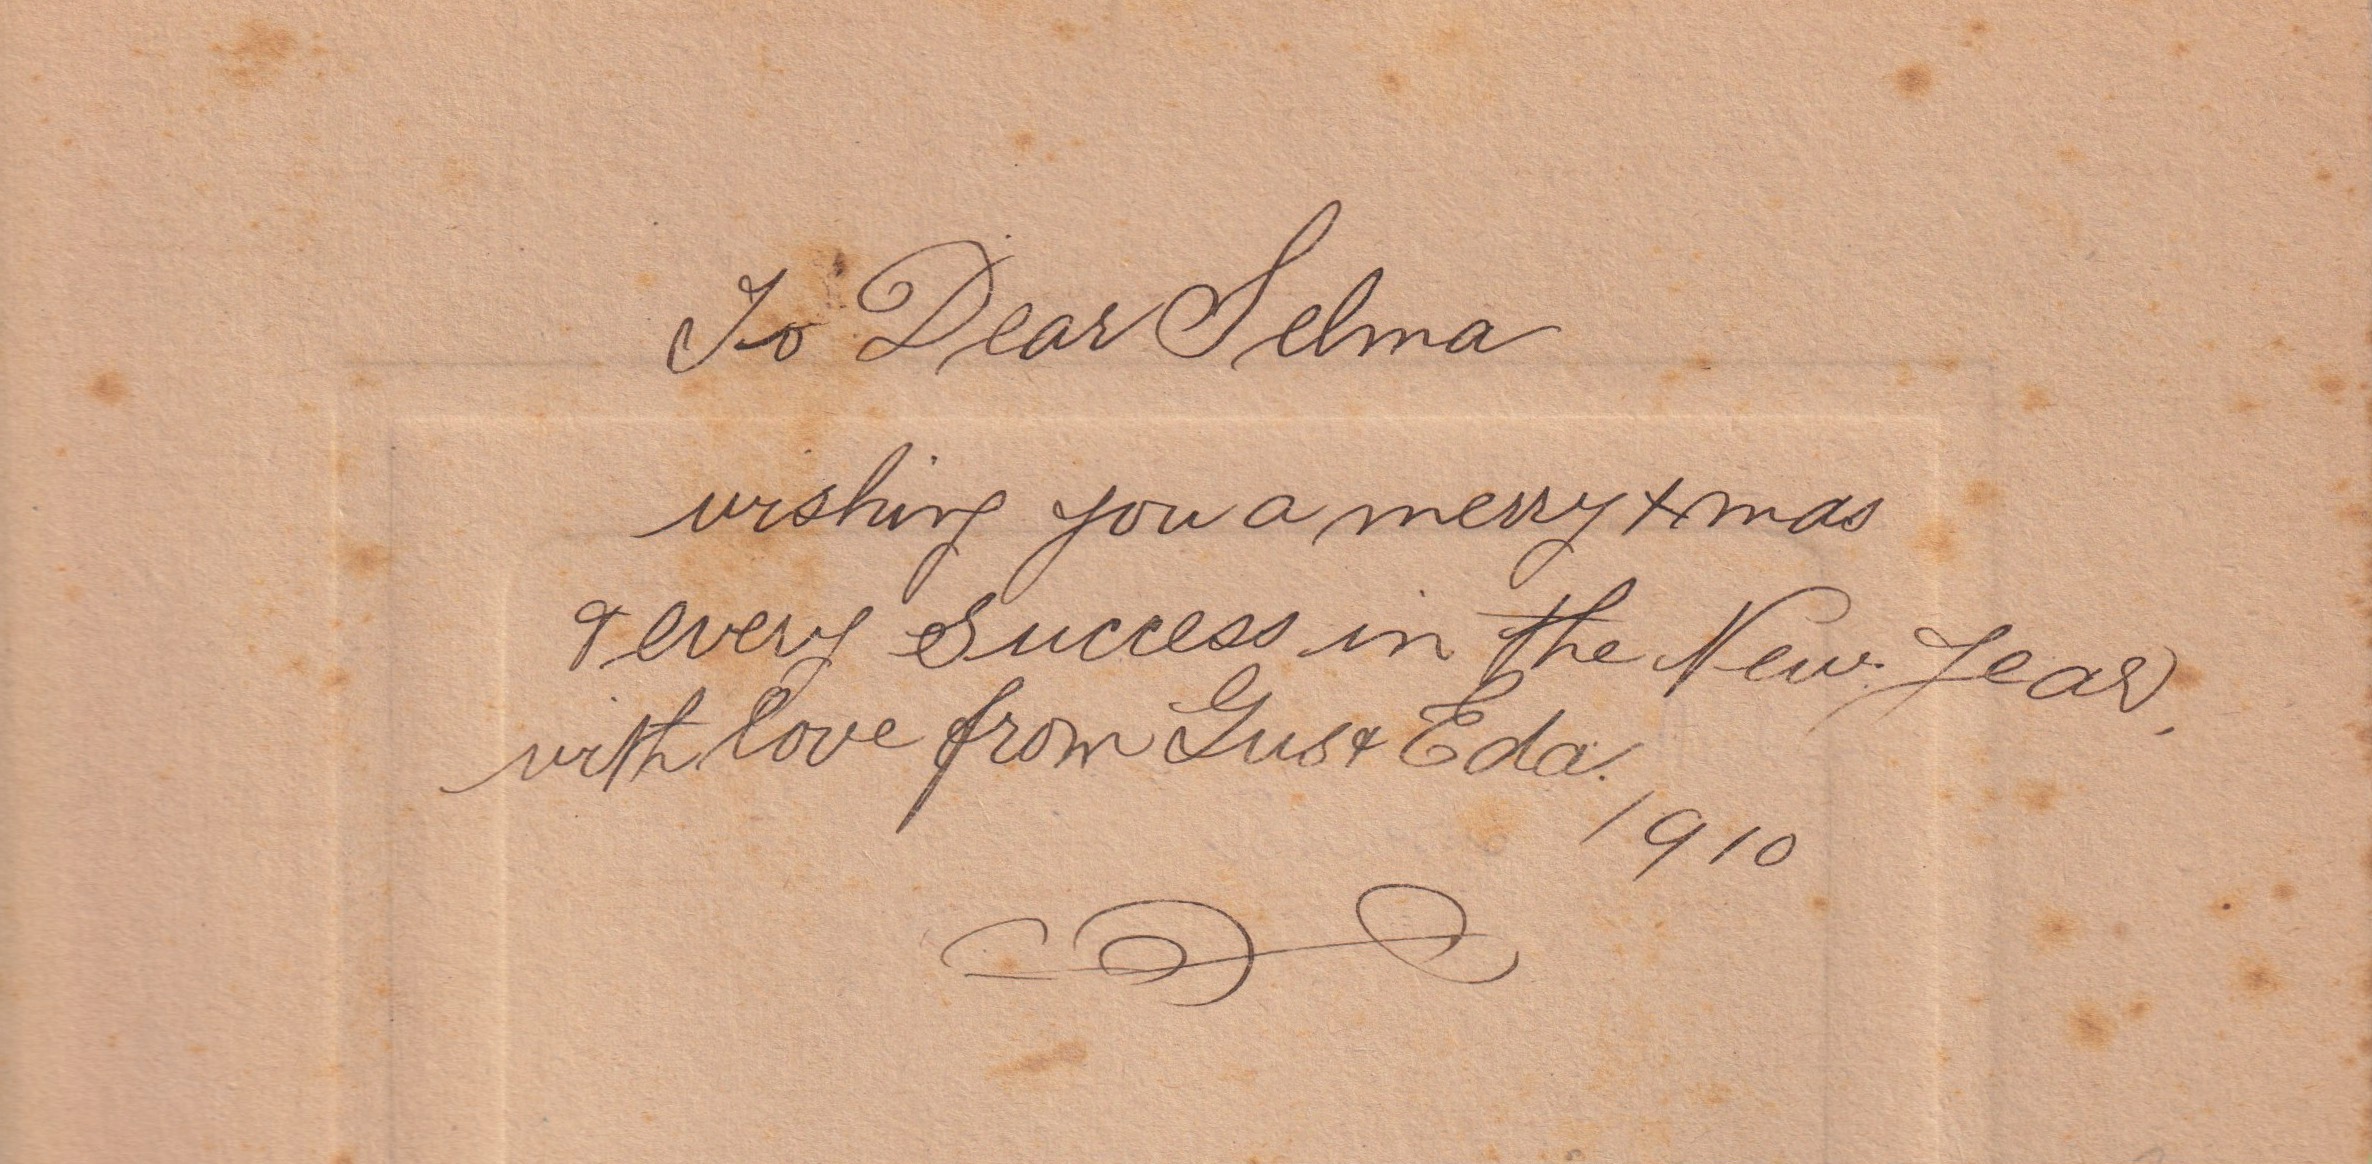 To Dear Selma
wishing you a merry xmas
& every success in the New Year,
with love from Gus & Eda.
1910